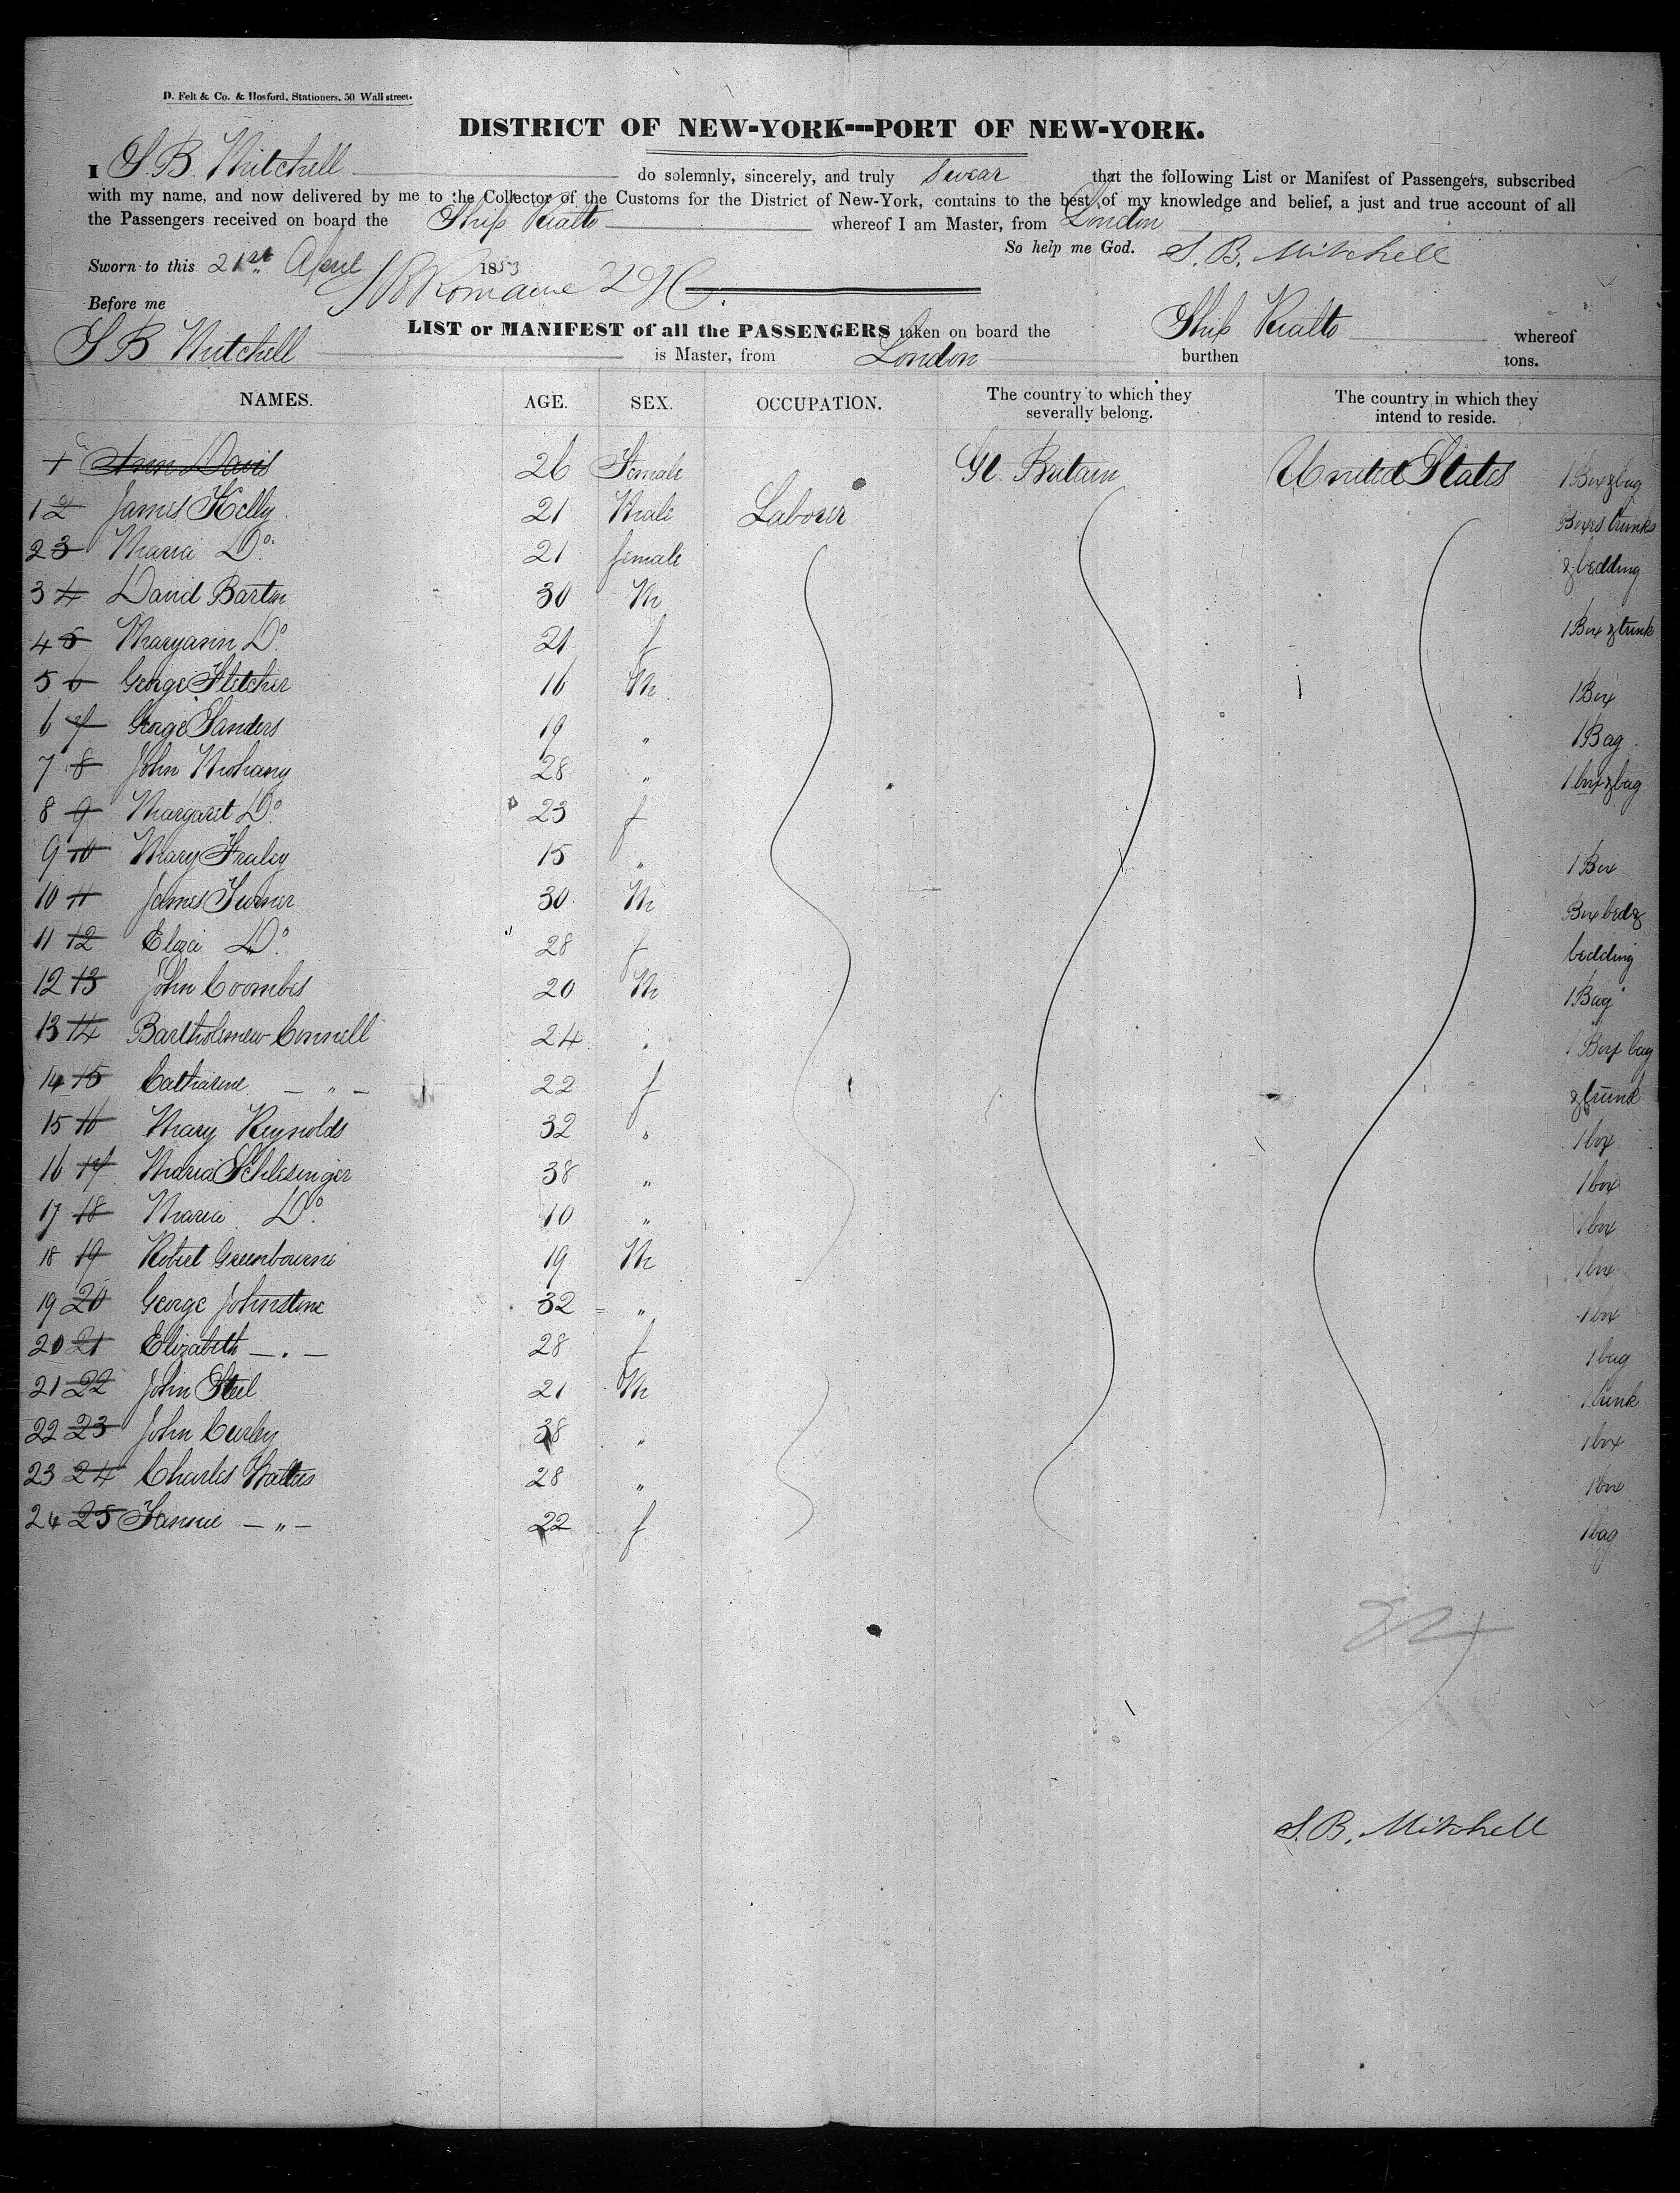 D. Felt & Co. & Hosford, Stationers, 50 Wall street.
DISTRICT OF NEW-YORK---PORT OF NEW-YORK.
I S. B. Mitchell do solemnly, sincerely, and truly Swear that the following List or Manifest of Passengers, subscribed
with my name, and now delivered by me to the Collector of the Customs for the District of New-York, contains to the best of my knowledge and belief, a just and true account of all
the Passengers received on board the Ship Rialto whereof I am Master, from London
So help me God. S. B. Mitchell
Sworn to this 21st April 1853
Before me Romaine
LIST or MANIFEST of all the PASSENGERS taken on board the Ship Rialto whereof
S B Mitchell is Master, from London burthen tons.
NAMES. AGE. SEX. OCCUPATION. The country to which they severally belong. The country in which they intend to reside.
1 Ann Davis 26 Female Gt. Britain United States 1 Box & bag
1 2 James Kelly 21 Male Laborer Boxes trunks
2 3 Maria Do. 21 female & bedding
3 4 David Barton 30 M
4 5 Maryann Do. 21 f 1 Box & trunk
5 6 George Fletcher 16 M 1 Box
6 7 George Sanders 19 " 1 Bag
7 8 John 28 " 1 box & bag
8 9 Margaret Do. 23 f
9 10 Mary Fraley 15 " 1 Box
10 11 James Turner 30 M Box bed &
11 12 Eliza Do. 28 f bedding
12 13 John Coombes 20 M 1 Bag
13 14 Bartholemew Connell 24 " 1 Box bag
14 15 Catharine — " — 22 f & trunk
15 16 Mary Reynolds 32 " 1 box
16 17 Maria Schlesinger 38 " 1 box
17 18 Maria Do. 10 " 1 box
18 19 Robert Greenbourne 19 M 1 box
19 20 George Johnstone 32 " 1 box
20 21 Elizabeth — " — 28 f 1 bag
21 22 John Steel 21 M 1 trunk
22 23 John Curley 38 " 1 box
23 24 Charles Watters 28 " 1 box
24 25 Fannie — " — 22 f 1 bag
24
S. B. Mitchell